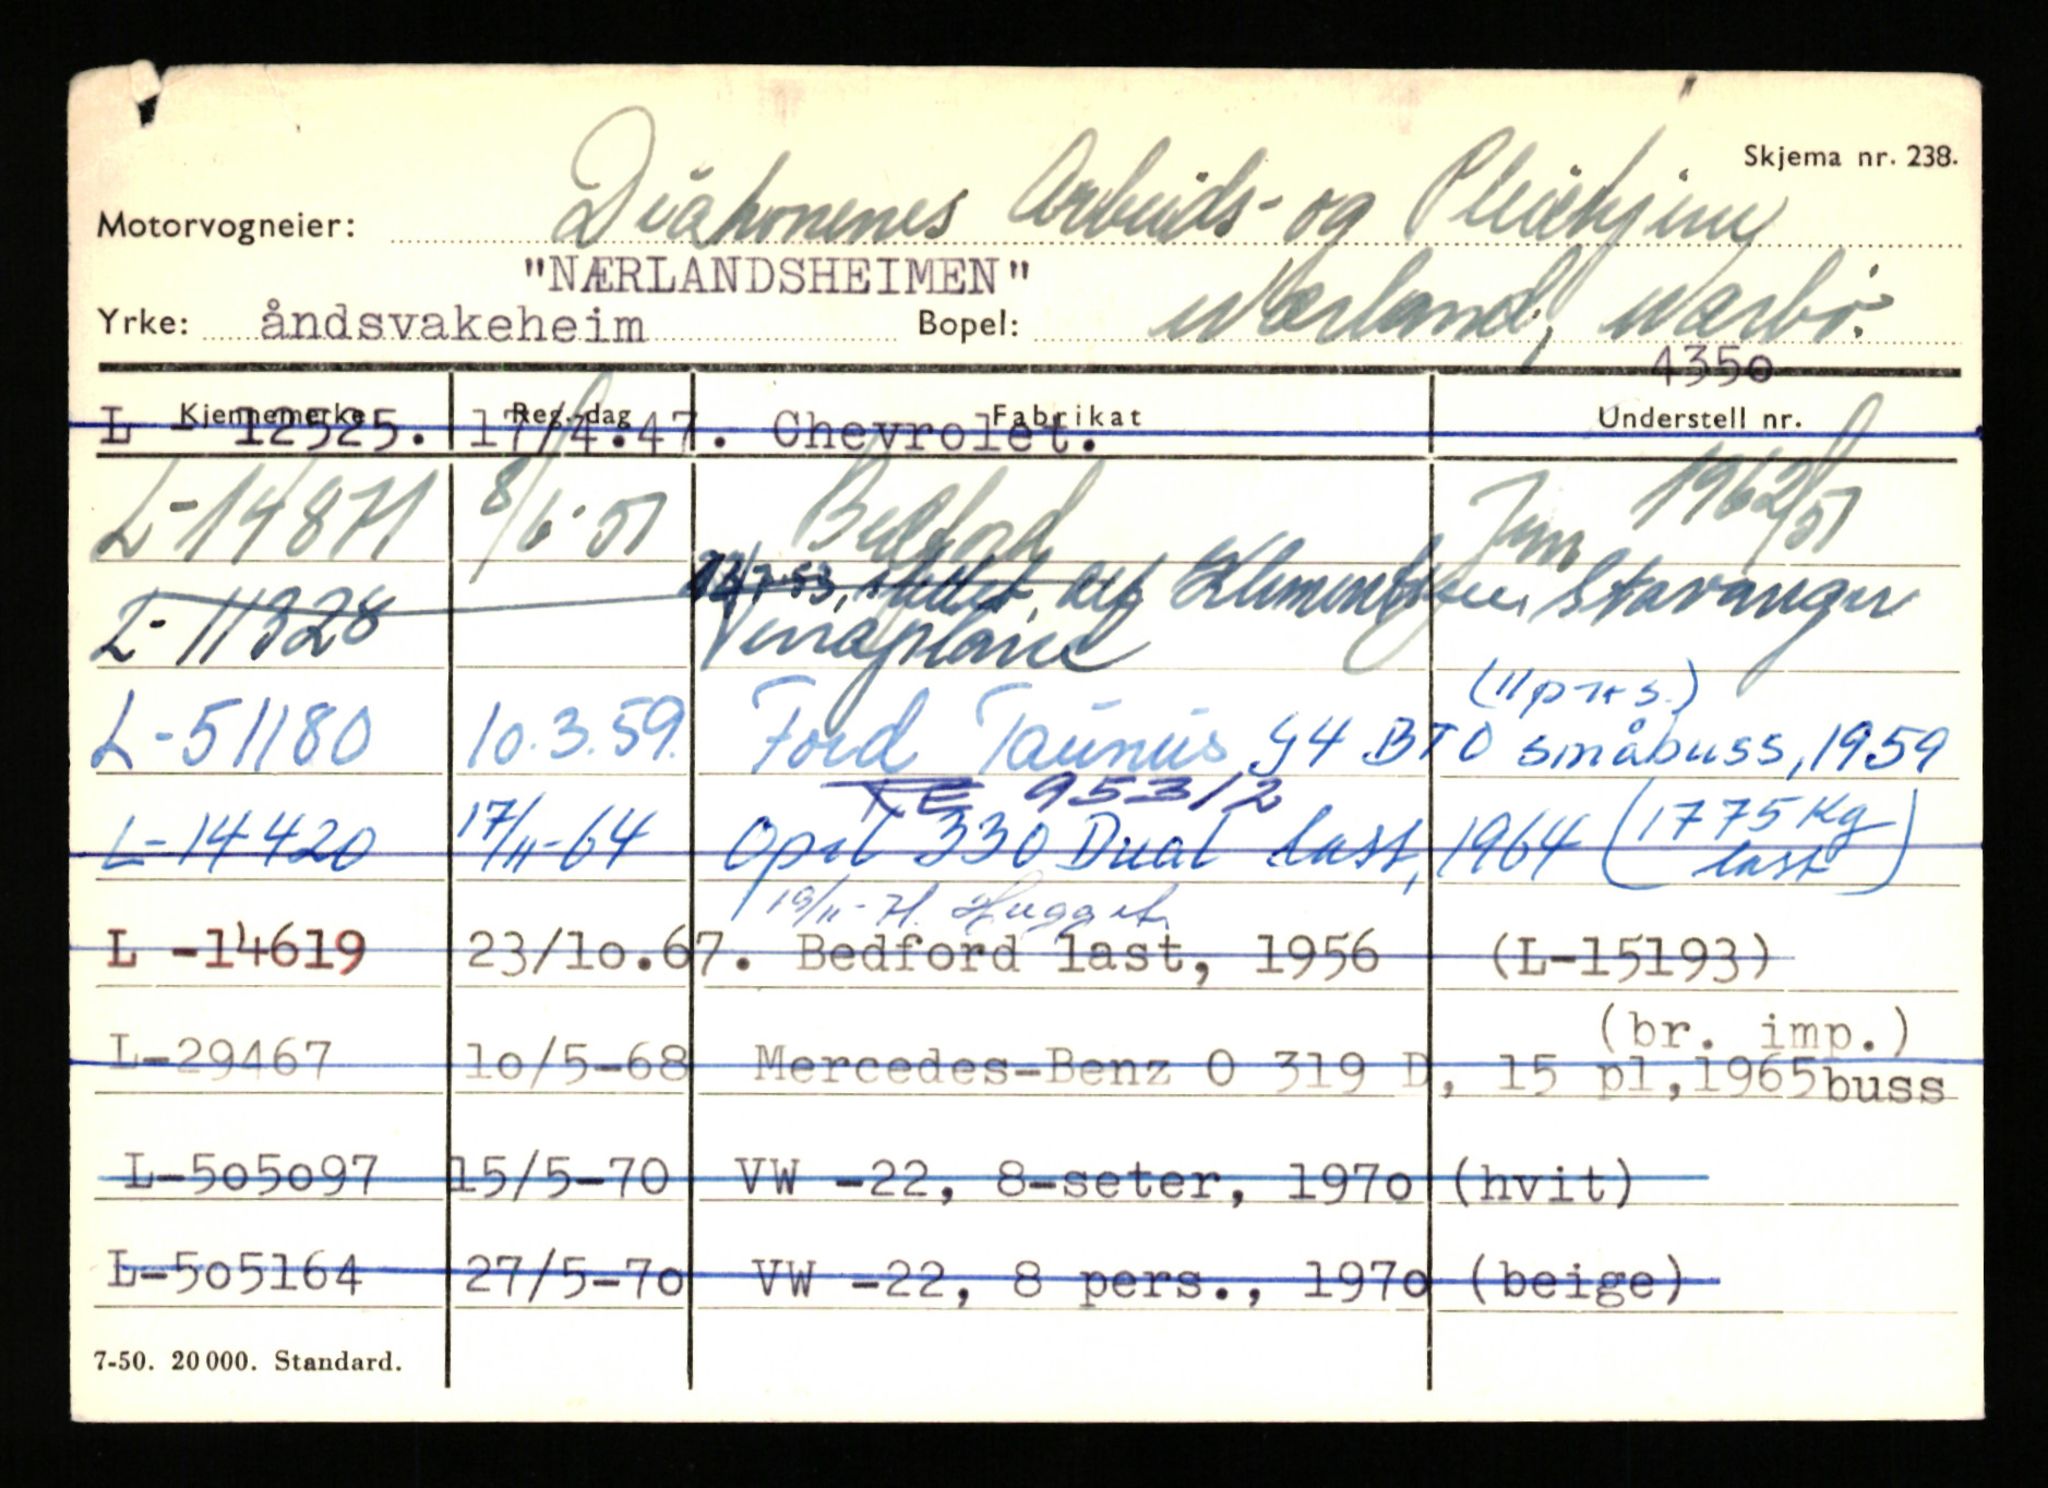 Skjema nr. 238.
Motorvogneier: Diakonenes Arbeids- og Pleiehjem
"NÆRLANDSHEIMEN"
Yrke: åndsvakeheim Bopel: Nærland, Nærbø.
4350
Kjennemerke Reg. dag Fabrikat Understell nr.
L - 12525. 17/4.47. Chevrolet.
L-14871 8/6-51 Bedford 1962/51
13/7-53, Stavanger
L-11328
(11 pers.)
L-51180 10.3.59. Ford Taunus G4 BTO småbuss, 1959
TE 953/2
L-14420 17/11-64 Opel 330 Dual last, 1964 (1775 kg last)
19/11-71. Hugget
L -14619 23/10.67. Bedford last, 1956 (L-15193)
(br. imp.)
L-29467 10/5-68 Mercedes-Benz O 319 D, 15 pl,1965 buss
L-505097 15/5-70 VW -22, 8-seter, 1970 (hvit)
L-505164 27/5-70 VW -22, 8 pers., 1970 (beige)
7-50. 20 000. Standard.